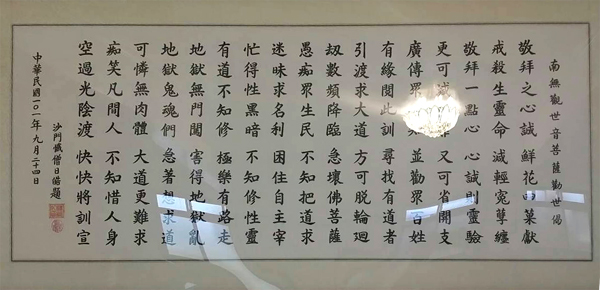 南無觀世音菩薩勸世偈
敬拜之心誠 鮮花品菓獻
戒殺生靈命 減輕寃孽纏
敬拜一點心 心誠則靈驗
更可減 又可省開支
廣傳眾 並勸眾百姓
有緣閱此訓 尋找有道者
引渡求大道 方可脫輪廻
劫數頻降臨 急壞佛菩薩
愚痴眾生民 不知把道求
迷昧求名利 困住自主宰
忙得性黑暗 不知修性靈
有道不知修 極樂有路走
地獄無門闖 害得地獄亂
地獄鬼魂們 急著想求道
可憐無肉體 大道更難求
痴笑凡間人 不知惜人身
空過光陰渡 快快將訓宣
沙門懺僧日 題
中華民國一０一年九月二十四日